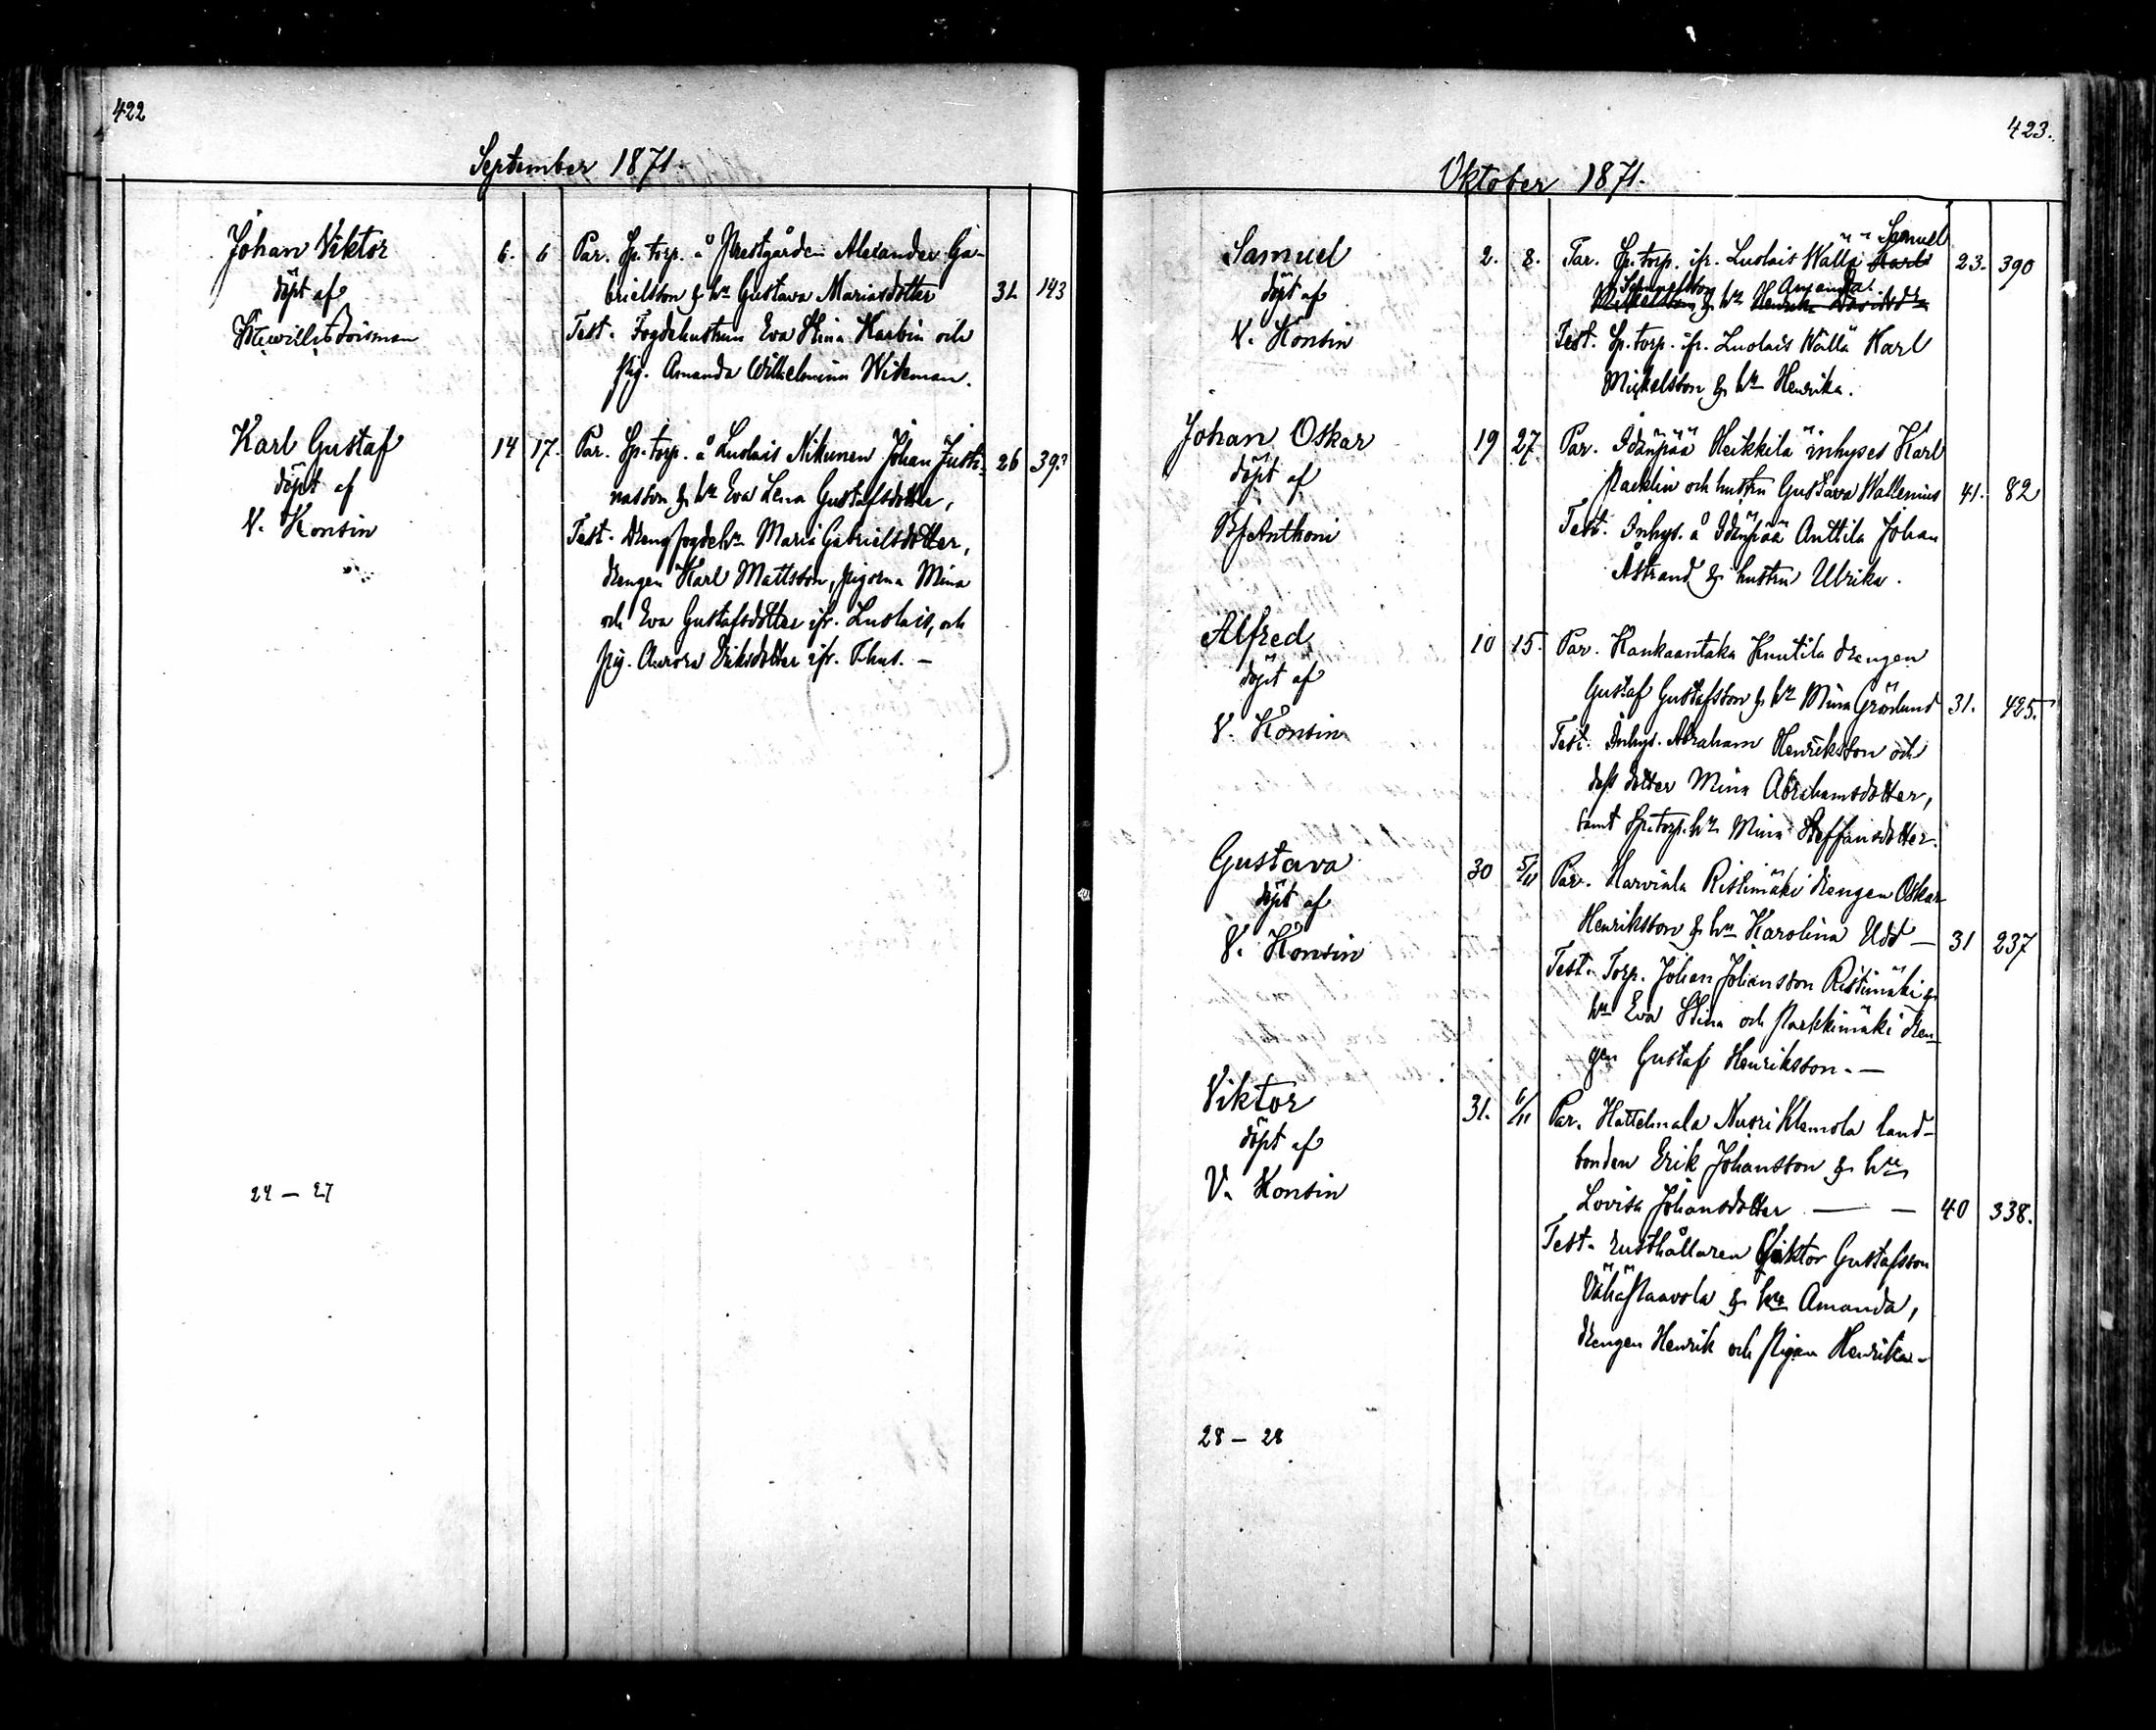 422
September 1871.
Johan Viktor
döpt af
6. 6
Par. Sp. torp. å Prestgården Alexander Ga-
brielsson & hu Gustava Mariasdotter 31 143
Test. Fogdehustrun Eva Stina Karbin och
pig. Amanda Wilhelmina Wikman.
Karl Gustaf
döpt af
V. Konsin
14 17.
Par. Sp. torp. å Luolais Nikunen Johan Justi- 26 393
nasson & hu Eva Lena Gustafsdotter,
Test. Drengfogdehu Maria Gabrielsdotter,
drengen Karl Mattsson, pigorna Mina
och Eva Gustafsdotter ifr. Luolais, och
pig. Aurora Eriksdotter ifr. Thus. —
24 — 27
423.
Oktober 1871.
Samuel
döpt af
V. Konsin
2. 8.
Par. Sp. torp. ifr. Luolais Wällä Karl Samuel 23. 390
Mickelsson Samuelsson & hu Henrika Davidsdr Amanda.
Test. Sp. torp. ifr. Luolais Wällä Karl
Mickelsson & hu Henrika.
Johan Oskar
döpt af
Anthoni
19 27
Par. Idänpää Heikkilä inhyses Karl
Packlin och hustru Gustava Wallenius 41. 82
Test. Inhys. å Idänpää Anttila Johan
Åstrand & hustru Ulrika.
Alfred
döpt af
V. Konsin
10 15.
Par. Kankaantaka Knutila drengen
Gustaf Gustafsson & hu Mina Grönlund 31. 425.
Test. Inhys. Abraham Henriksson och
dess dotter Mina Abrahamsdotter,
samt Sp. torp. hu Mina Steffansdotter.
Gustava
döpt af
V. Konsin
30 5/11
Par. Harviala Ristimäki drengen Oskar
Henriksson & hu Karolina Udd — 31 237
Test. Torp. Johan Johansson Ristimäki &
hu Eva Stina och Parkkimäki dren-
gen Gustaf Henriksson. —
Viktor
döpt af
V. Konsin
31. 6/11
Par. Hattelmala Nusri Klemola land-
bonden Erik Johansson & hu
Lovisa Johansdotter — — 40 338.
Test. rusthållaren Viktor Gustafsson
Vähä Paavola & hu Amanda,
drengen Henrik och Pigan Henrika.
28 — 28